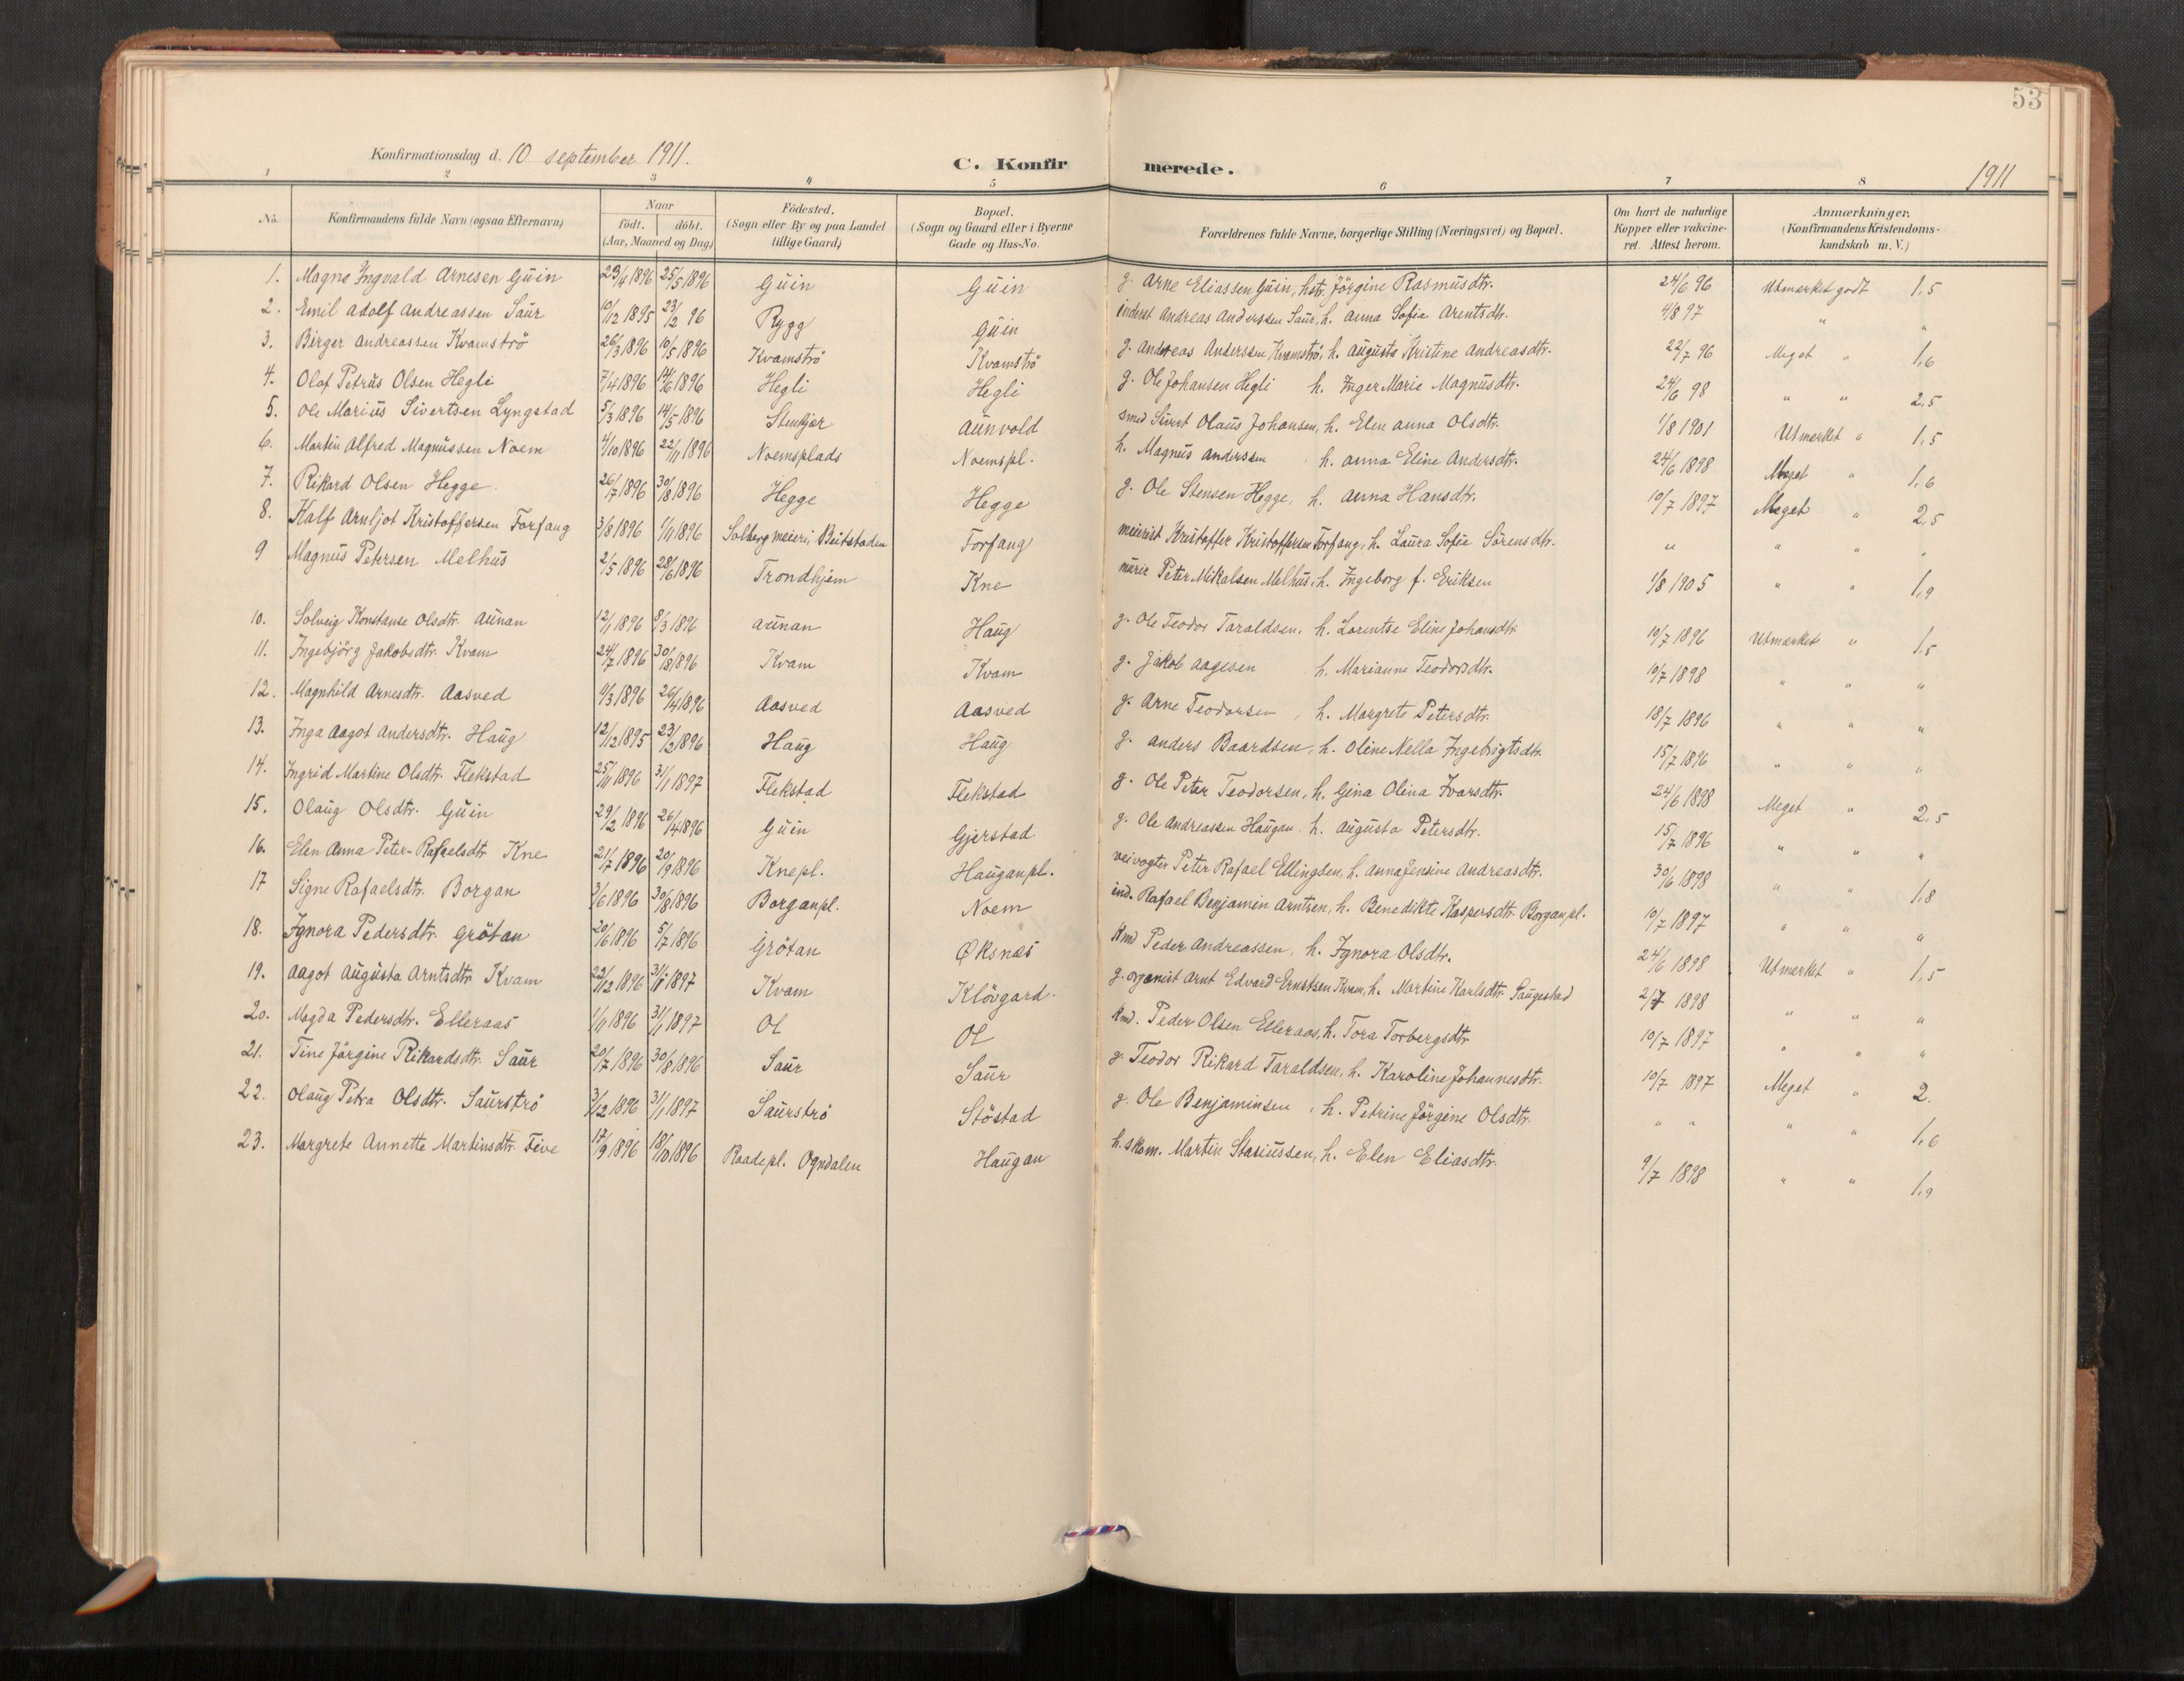 53
Konfirmationsdag d. 10 september 1911.
C. Konfirmerede.
1911
1 2 3 4 5 6 7 8
No. Konfirmandens fulde Navn (ogsaa Efternavn) Naar födt. döbt. (Aar, Maaned og Dag) Födested. (Sogn eller By og paa Landet tillige Gaard) Bopæl. (Sogn og Gaard eller i Byerne Gade og Hus-No. Forældrenes fulde Navne, borgerlige Stilling (Næringsvei) og Bopæl. Om havt de naturlige Kopper eller vakcineret. Attest herom. Anmærkninger. (Konfirmandens Kristendomskundskab m. V.)
1. Magne Ingvald Arnesen Guin 29/4 1896 25/5 1896 Guin Guin g. Arne Eliassen Guin, hstr. Jörgine Rasmusdtr. 24/6 96 Utmærket godt 1,5
2. Emil Adolf Andreassen Saur 10/12 1895 23/2 96 Rygg Guin inderst Andreas Anderssen Saur, h. Anna Sofie Arentsdtr. 4/8 97 " "
3. Birger Andreassen Kvamströ 26/3 1896 10/5 1896 Kvamströ Kvamströ g. Andreas Anderssen Kvamströ, h. Augusta Kristine Andreasdtr. 22/7 96 Meget " 1,6
4. Olaf Petrus Olsen Hegli 7/4 1896 14/6 1896 Hegli Hegli g. Ole Johansen Hegli h. Inger Marie Magnusdtr. 24/6 98 " " 2,5
5. Ole Marius Sivertsen Lyngstad 5/3 1896 14/5 1896 Stenkjær Aunvold smed Sivert Olaus Johansen, h. Elen Anna Olsdtr. 1/8 1901 Utmærket " 1,5
6. Martin Alfred Magnussen Noem 4/10 1896 22/11 1896 Noemsplads Noemspl. h. Magnus Anderssen h. Anna Eline Andersdtr. 24/6 1898 Meget " 1,6
7. Rikard Olsen Hegge. 26/7 1896 30/8 1896 Hegge Hegge g. Ole Stensen Hegge, h. Anna Hansdtr. 10/7 1897 Meget " 2,5
8. Kalf Arnljot Kristoffersen Forfang 3/8 1896 1/11 1896 Solberg meieri, Beitstaden Forfang meierist Kristoffer Kristoffersen Forfang, h. Laura Sofie Sörensdtr. " " " "
9 Magnus Petersen Melhus 2/5 1896 28/6 1896 Trondhjem Kne murer Peter Mikalsen Melhus, h. Ingeborg f. Eriksen 1/8 1905 " " 1,9
10. Solveig Konstanse Olsdtr. Aunan 12/1 1896 8/3 1896 Aunan Haug g. Ole Teodor Taraldsen, h. Lorentse Eline Johansdtr. 10/7 1896 Utmærket " 1,5
11. Ingebjörg Jakobsdtr. Kvam 24/7 1896 30/8 1896 Kvam Kvam g. Jakob Aagesen h. Marianne Teodorsdtr. 10/7 1898 " " "
12. Magnhild Arnesdtr. Aasved 9/3 1896 26/4 1896 Aasved Aasved g. Arne Teodorsen, h. Margrete Petersdtr. 18/7 1896 " " "
13. Inga Aagot Andersdtr. Haug 12/12 1895 23/2 1896 Haug Haug g. Anders Baardsen, h. Oline Nella Ingebrigtsdtr. 15/7 1896 " " "
14. Ingrid Martine Olsdtr. Flekstad 25/11 1896 31/1 1897 Flekstad Flekstad g. Ole Peter Teodorsen, h. Gina Olina Ivarsdtr. 24/6 1898 Meget " 2,5
15. Olaug Olsdtr. Guin 29/2 1896 26/4 1896 Guin Gjerstad g. Ole Andreassen Haugan, h. Augusta Petersdtr. 15/7 1896 " " "
16. Elen Anna Peter-Rafaelsdtr. Kne 21/7 1896 20/9 1896 Knepl. Hauganpl. veivogter Peter Rafael Ellingsen, h. Anna Jensine Andreasdtr. 30/6 1898 " " 1,8
17 Signe Rafaelsdtr. Borgan 3/6 1896 30/8 1896 Borganpl. Noem ind. Rafael Benjamin Arntsen, h. Benedikte Kaspersdtr. Borganpl. 10/7 1897 " " "
18. Ignora Pedersdtr. Grötan 20/6 1896 5/7 1896 Grötan Øksnes kmd Peder Andreassen, h. Ignora Olsdtr. 24/6 1898 Utmærket " 1,5
19. Aagot Augusta Arntsdtr. Kvam 22/12 1896 31/1 1897 Kvam Klövgard. g. organist Arnt Edvard Ernstsen Kvam, h. Martine Karlsdtr. Saugestad 2/7 1898 " " "
20. Magda Pedersdtr. Elleraas 1/11 1896 31/1 1897 Ol Ol kmd. Peder Olsen Elleraas, h. Tora Torbergsdtr. 10/7 1897 " " "
21. Tine Jörgine Rikardsdtr. Saur 20/7 1896 30/8 1896 Saur Saur g. Teodor Rikard Taraldsen, h. Karoline Johannesdtr. 10/7 1897 Meget " 2.
22. Olaug Petra Olsdtr. Saurströ 3/12 1896 31/1 1897 Saurströ Stöstad g. Ole Benjaminsen, h. Petrine Jörgine Olsdtr. " " " " 1,6
23. Margrete Annette Martinsdtr. Five 17/9 1896 18/10 1896 Raadepl. Ogndalen Haugan h. skom. Martin Stasiussen, h. Elen Eliasdtr. 9/7 1898 " " 1,9